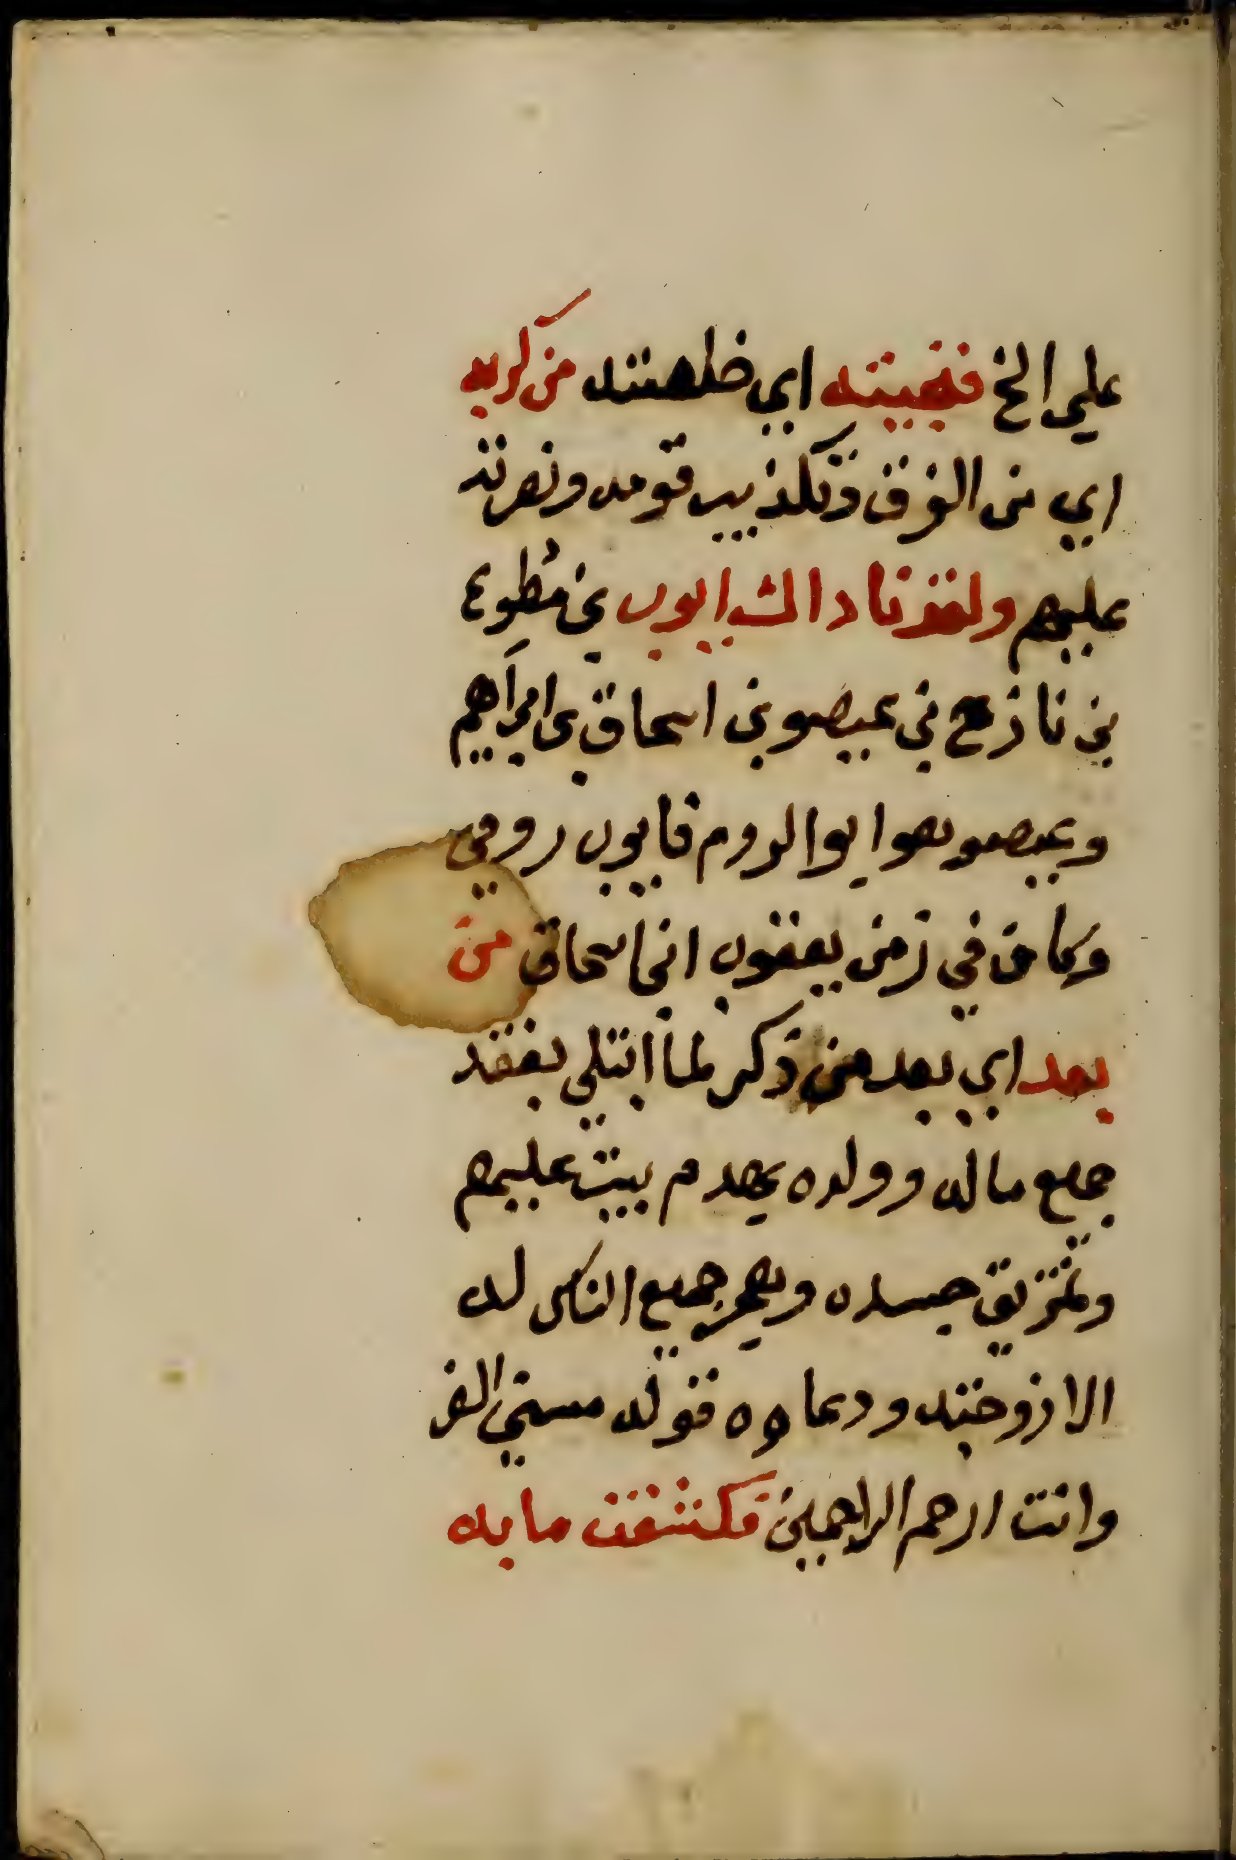 علي الخ فنجيته اي خلصته من كربه
اي من الغرق وتكذيب قومه ونصرته
عليهم ولقد نادا لك ايوب بن مطوع
بن نازح بن عيصو بن اسحاق بن ابراهيم
وعيصو هو ابو الروم فايوب رومي
وكان في زمن يعقوب ابن اسحاق من
بعد اي بعد من ذكر لما ابتلي بفقد
جميع ماله وولده بهدم بيت عليهم
وتمزيق جسده وهجر جميع الناس له
الا زوجته ودعاوه قوله مسني الضر
وانت ارحم الراحمين فكشفت ما به